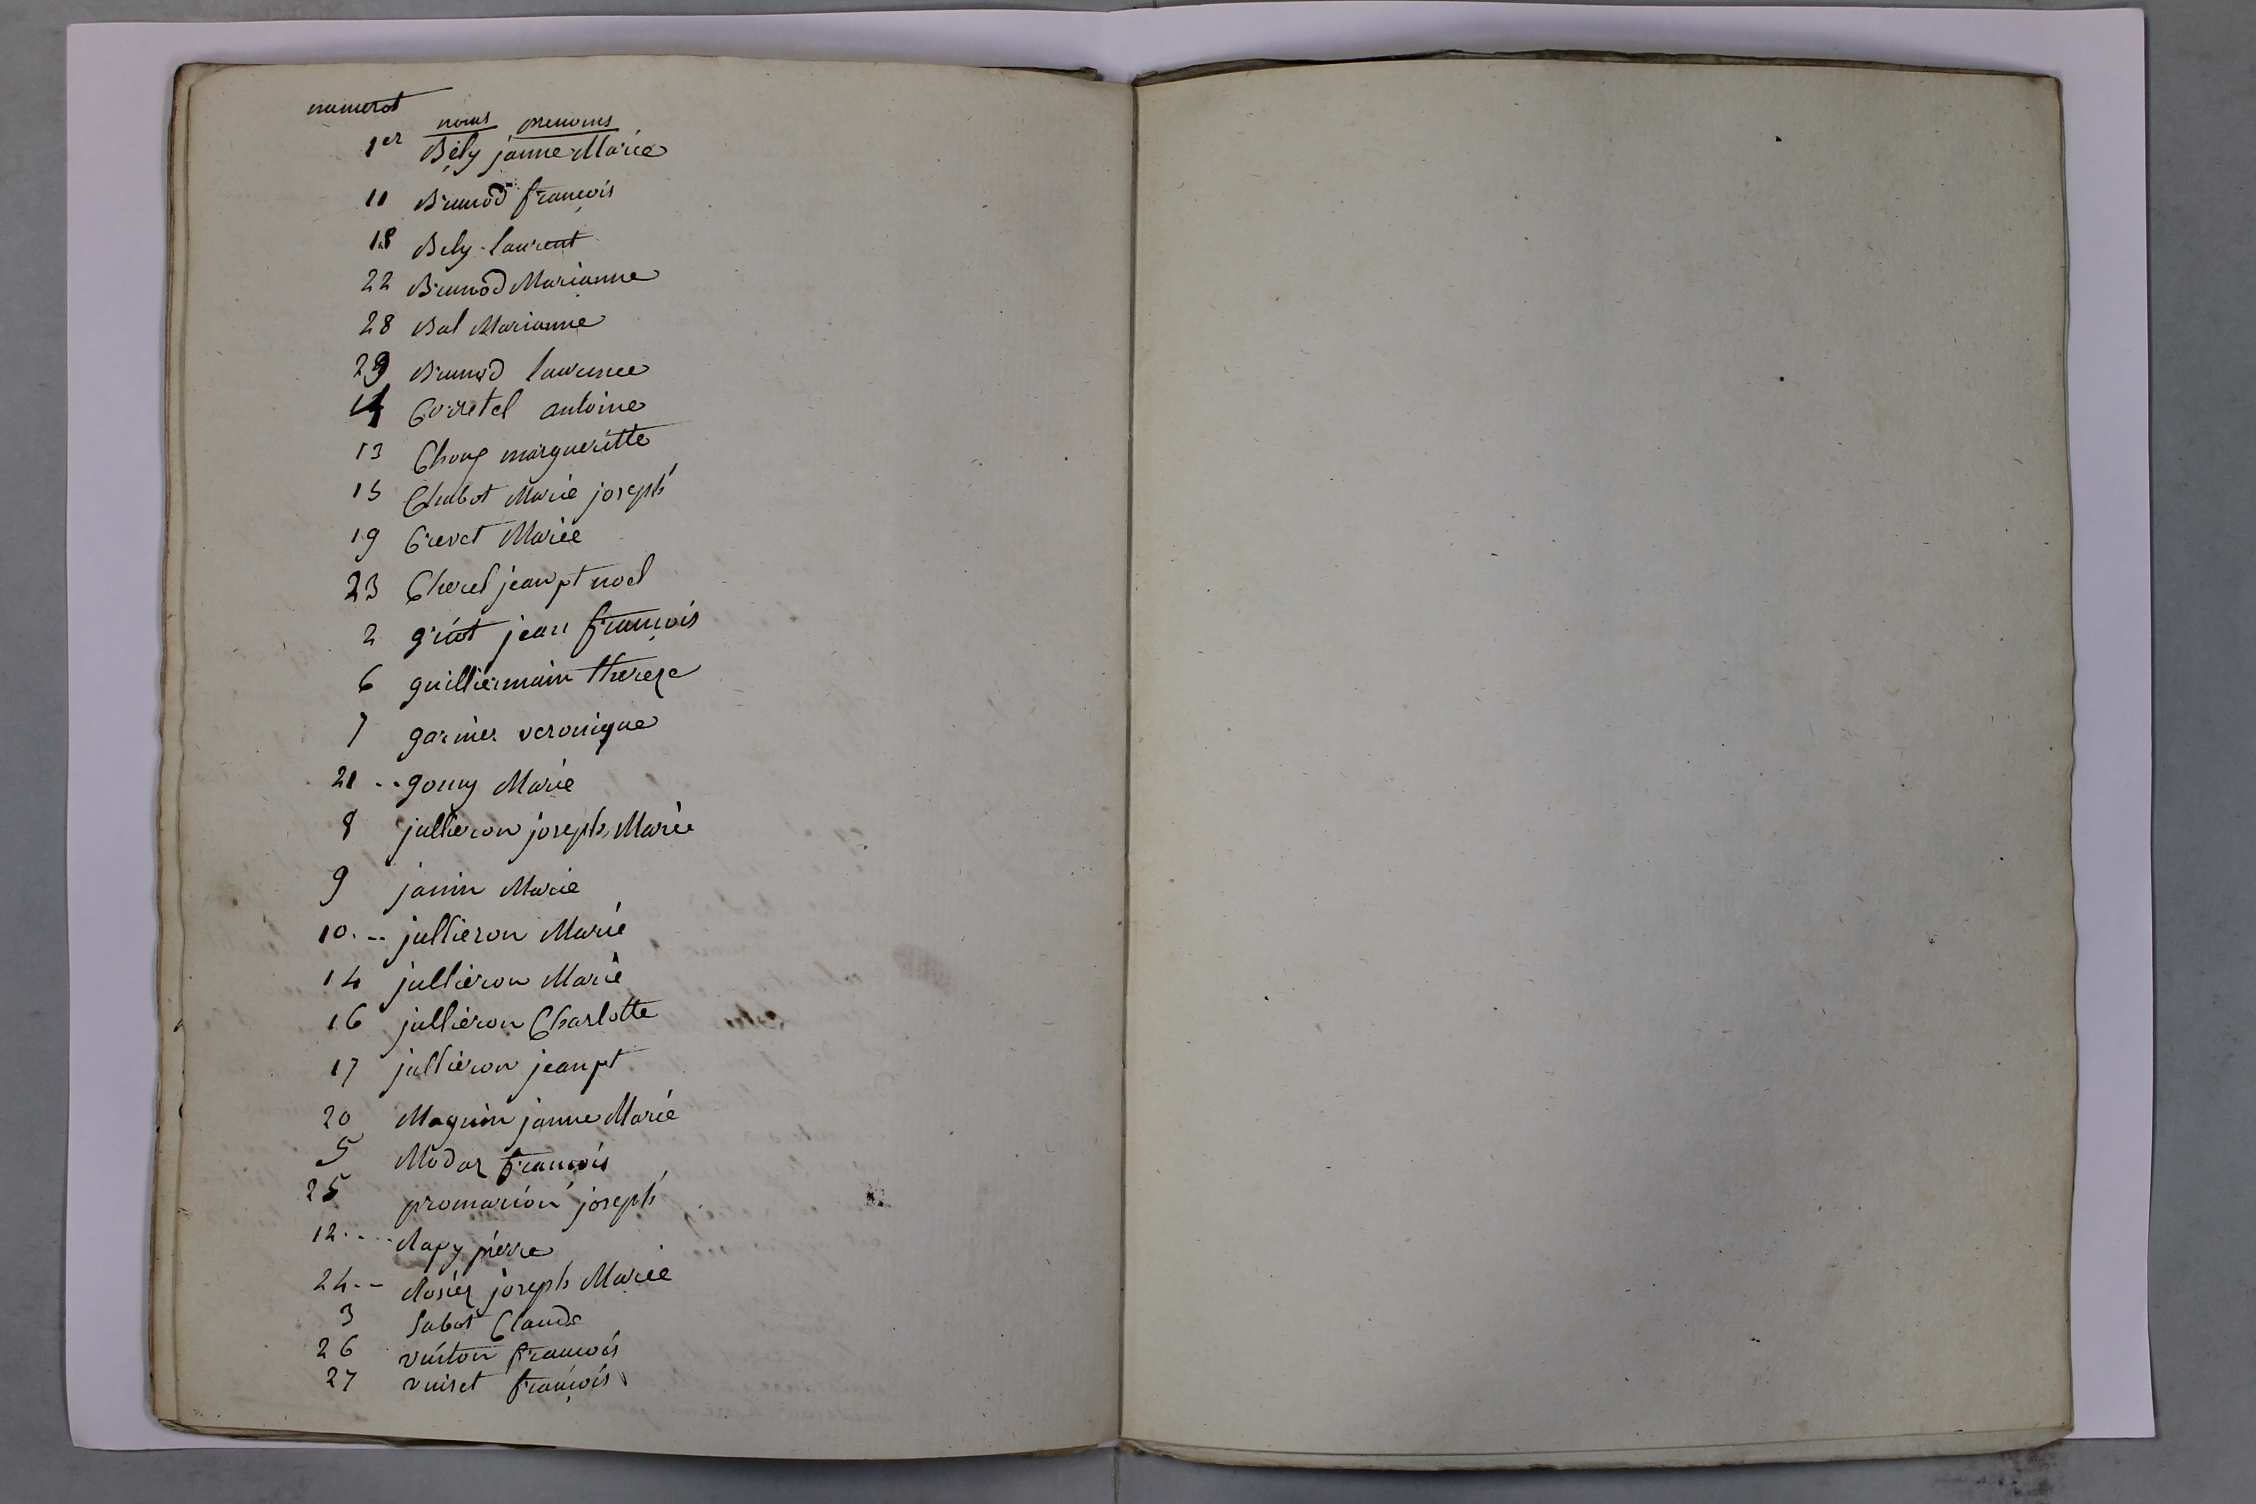 numerot
noms prenoms
1er Bély janne Marie
11 Brunod françois
18 Bely laurent
22 Brunod Marianne
28 Bal Marianne
29 Brunod laurence
4 Corretel antoine
13 Choup margueritte
15 Chabot Marie joseph
19 Crevet Marie
23 Cherel jean pt noel
2 griot jean françois
6 guilliermain thereze
7 garnier veronique
21 -- gouy Marie
8 jullieron joseph Marie
9 janin Marie
10. -- jullieron Marie
14 jullieron Marie
16 jullieron Charlotte
17 jullieron jean pt
20 Maguin janne Marie
5 Modaz françois
25 promarion joseph
12 .... Rapy pierre
24 -- Rosiez joseph Marie
3 Sabot Claude
26 vuiton françois
27 vuiset françois